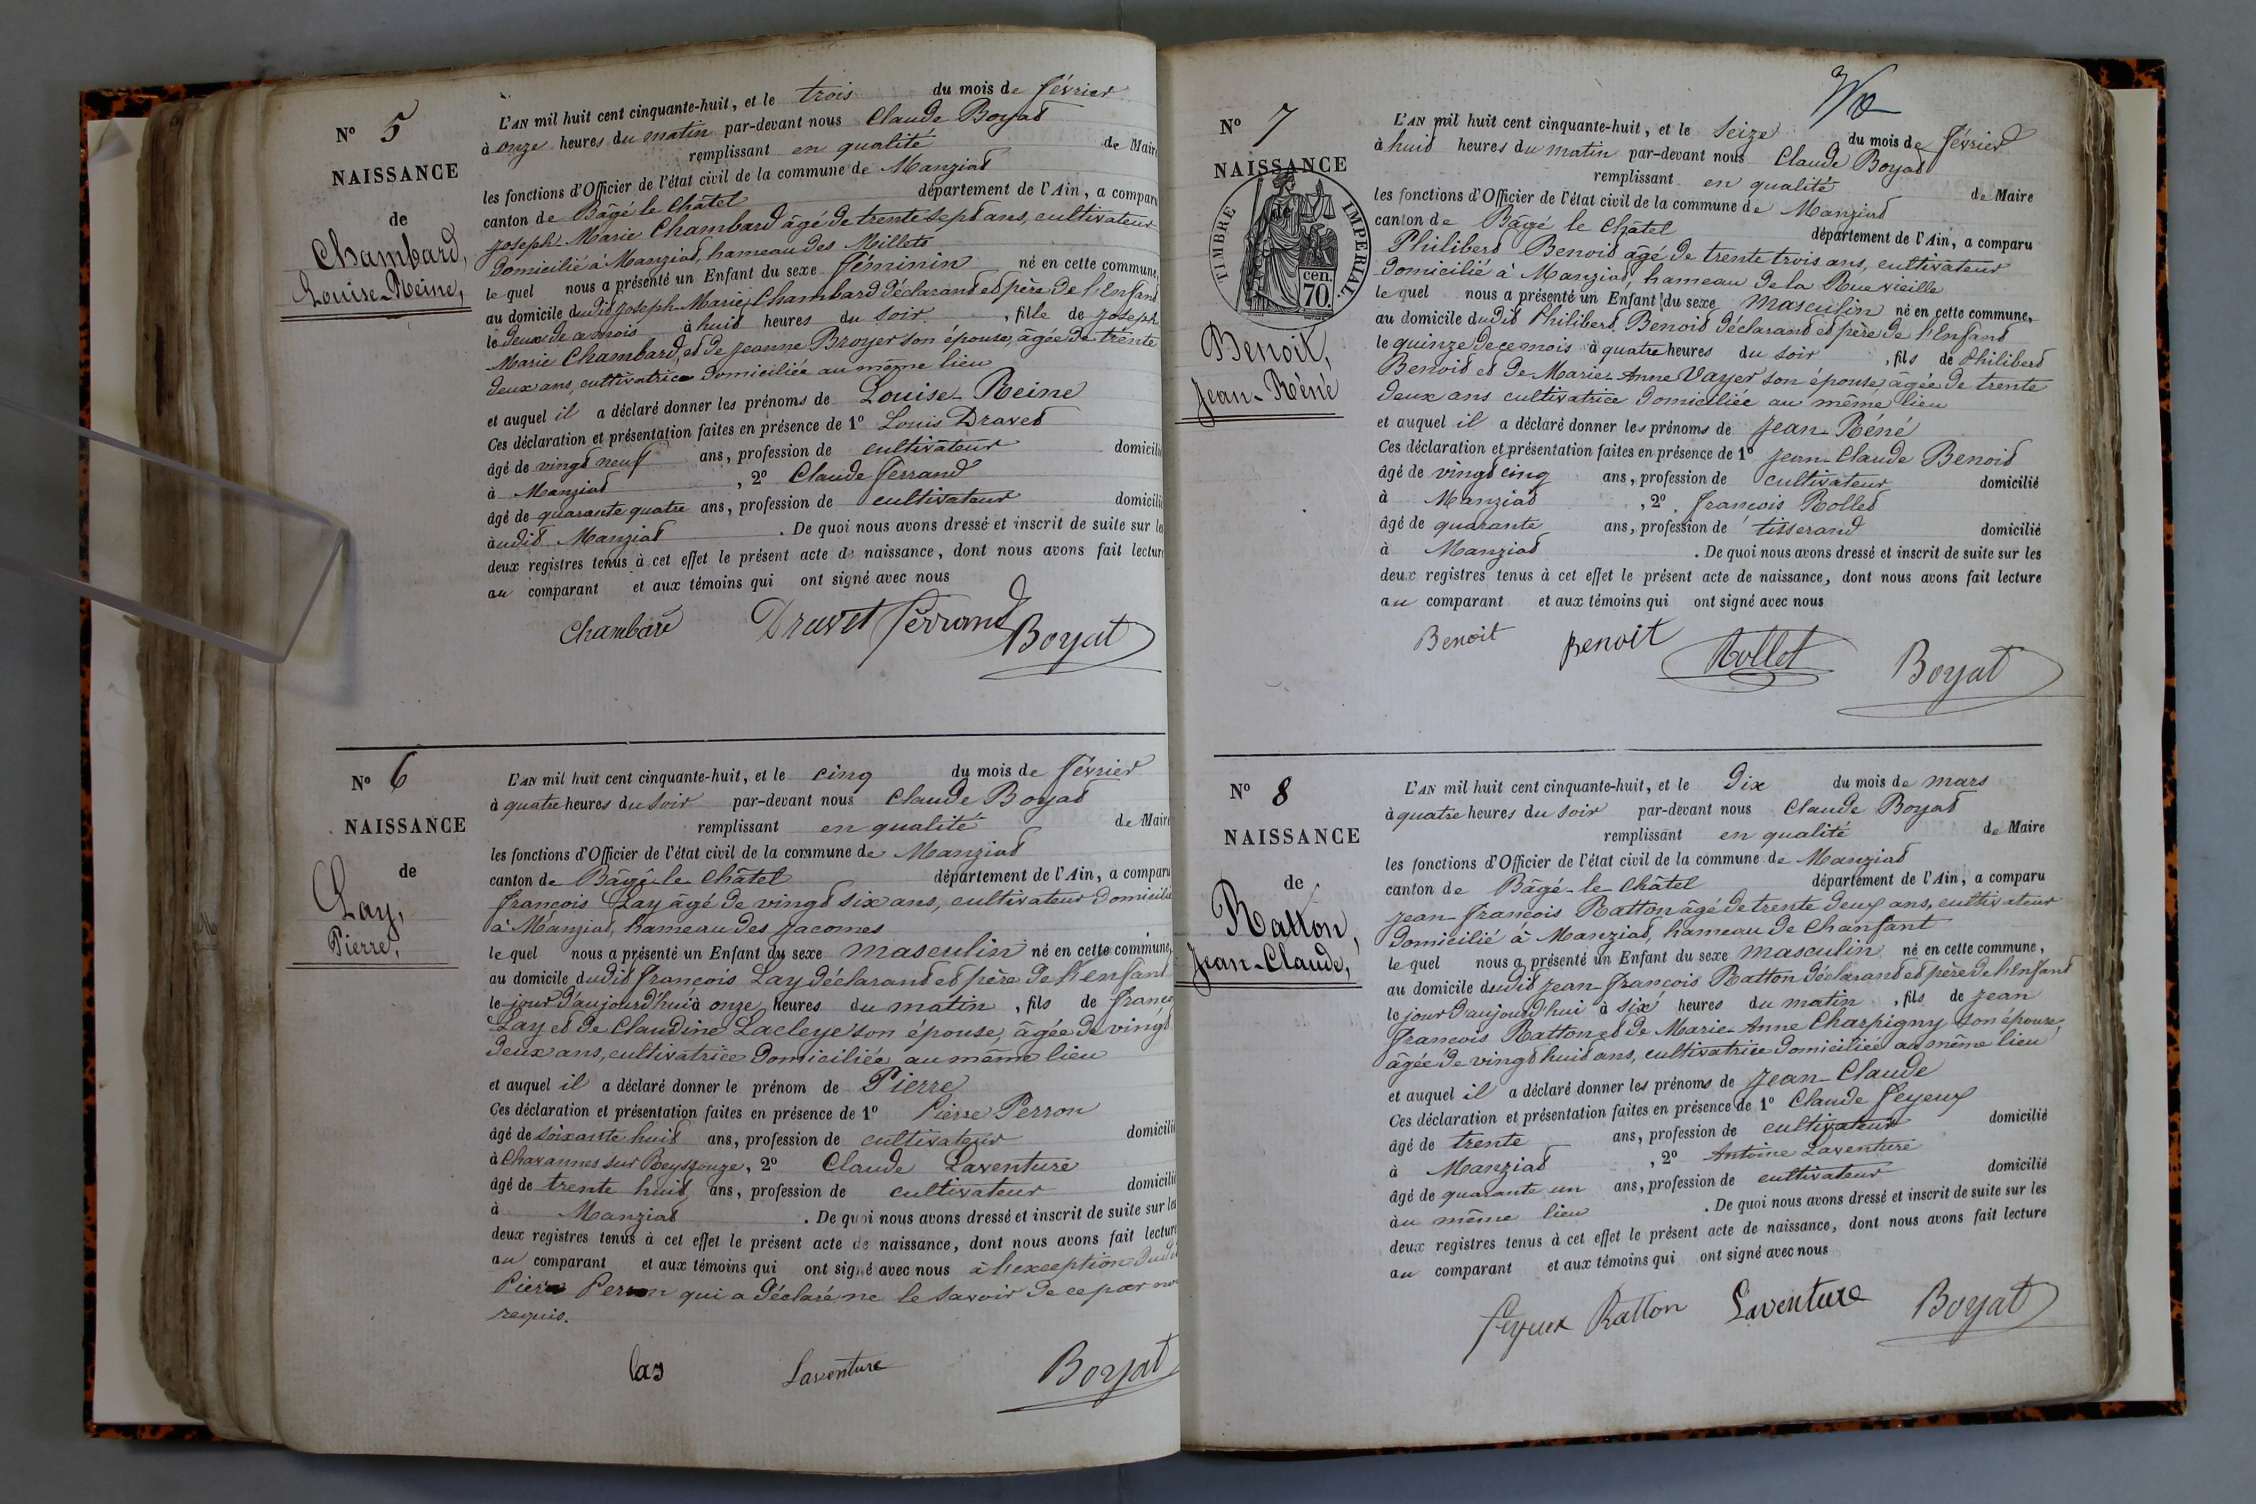 N° 5
NAISSANCE
de
Chambard,
Louise-Reine,
L'AN mil huit cent cinquante-huit, et le trois du mois de février
à onze heures du matin par-devant nous Claude Boyat
remplissant en qualité de Maire
les fonctions d'Officier de l'état civil de la commune de Manziat
canton de Bâgé le Châtel département de l'Ain, a comparu
Joseph-Marie Chambard âgé de trente sept ans, cultivateur
domicilié à Manziat, hameau des Millets
le quel nous a présenté un Enfant du sexe féminin né en cette commune,
au domicile dudit Joseph-Marie Chambard déclarant et père de l'Enfant
le deux de ce mois à huit heures du soir, fille de Joseph
Marie Chambard, et de Jeanne Broyer son épouse, âgée de trente
deux ans, cultivatrice domiciliée au même lieu
et auquel il a déclaré donner les prénoms de Louise-Reine
Ces déclaration et présentation faites en présence de 1° Louis Dravet
âgé de vingt neuf ans, profession de cultivateur domicilié
à Manziat, 2° Claude Ferrand
âgé de quarante quatre ans, profession de cultivateur domicilié
à udit Manziat. De quoi nous avons dressé et inscrit de suite sur les
deux registres tenus à cet effet le présent acte de naissance, dont nous avons fait lecture
au comparant et aux témoins qui ont signé avec nous
Chambard Dravet Ferrand Boyat
N° 6
NAISSANCE
de
Lay,
Pierre,
L'AN mil huit cent cinquante-huit, et le cinq du mois de février
à quatre heures du soir par-devant nous Claude Boyat
remplissant en qualité de Maire
les fonctions d'Officier de l'état civil de la commune de Manziat
canton de Bâgé-le Châtel département de l'Ain, a comparu
François Lay âgé de vingt six ans, cultivateur domicilié
à Manziat, hameau des Jacomes
le quel nous a présenté un Enfant du sexe masculin né en cette commune,
au domicile dudit François Lay déclarant et père de l'enfant
le jour d'aujourd'hui à onze heures du matin, fils de Franço
Lay et de Claudine Lacleye son épouse, âgée de vingt
deux ans, cultivatrice domiciliée au même lieu
et auquel il a déclaré donner le prénom de Pierre
Ces déclaration et présentation faites en présence de 1° Pierre Perron
âgé de soixante huit ans, profession de cultivateur domicilié
à Chavannes sur Reyssouze, 2° Claude Laventure
âgé de trente huit ans, profession de cultivateur domicilié
à Manziat. De quoi nous avons dressé et inscrit de suite sur les
deux registres tenus à cet effet le présent acte de naissance, dont nous avons fait lecture
au comparant et aux témoins qui ont signé avec nous à l'exception dudit
Pierre Perron qui a déclaré ne le savoir de ce par nous
requis.
lay Laventure Boyat
N° 7
NAISSANCE
de
TIMBRE IMPERIAL.
70 cen.
Benoit,
Jean-Réné
L'AN mil huit cent cinquante-huit, et le seize du mois de février
à huit heures du matin par-devant nous Claude Boyat
remplissant en qualité de Maire
les fonctions d'Officier de l'état civil de la commune de Manziat
canton de Bâgé le Châtel département de l'Ain, a comparu
Philibert Benoit âgé de trente trois ans, cultivateur
domicilié à Manziat, hameau de la Rue vieille
le quel nous a présenté un Enfant du sexe masculin né en cette commune,
au domicile dudit Philibert Benoit déclarant et père de l'Enfant
le quinze de ce mois à quatre heures du soir, fils de Philibert
Benoit et de Marie-Anne Vayer son épouse âgée de trente
deux ans cultivatrice domiciliée au même lieu
et auquel il a déclaré donner les prénoms de Jean-Réné
Ces déclaration et présentation faites en présence de 1° Jean-Claude Benoit
âgé de vingt cinq ans, profession de cultivateur domicilié
à Manziat, 2° François Rollet
âgé de quarante ans, profession de tisserand domicilié
à Manziat. De quoi nous avons dressé et inscrit de suite sur les
deux registres tenus à cet effet le présent acte de naissance, dont nous avons fait lecture
au comparant et aux témoins qui ont signé avec nous
Benoit Benoit Rollet Boyat
N° 8
NAISSANCE
de
Ratton,
Jean-Claude,
L'AN mil huit cent cinquante-huit, et le dix du mois de mars
à quatre heures du soir par-devant nous Claude Boyat
remplissant en qualité de Maire
les fonctions d'Officier de l'état civil de la commune de Manziat
canton de Bâgé-le-Châtel département de l'Ain, a comparu
Jean-François Ratton âgé de trente deux ans, cultivateur
domicilié à Manziat, hameau de Chanfant
le quel nous a présenté un Enfant du sexe masculin né en cette commune,
au domicile dudit Jean-François Ratton déclarant et père de l'Enfant
le jour d'aujourd'hui à six heures du matin, fils de Jean
François Ratton et de Marie-Anne Charpigny son épouse,
âgée de vingt huit ans, cultivatrice domiciliée au même lieu
et auquel il a déclaré donner les prénoms de Jean-Claude
Ces déclaration et présentation faites en présence de 1° Claude Feyeux
âgé de trente ans, profession de cultivateur domicilié
à Manziat, 2° Antoine Laventure
âgé de quarante un ans, profession de cultivateur domicilié
àu même lieu. De quoi nous avons dressé et inscrit de suite sur les
deux registres tenus à cet effet le présent acte de naissance, dont nous avons fait lecture
au comparant et aux témoins qui ont signé avec nous
Feyeux Ratton Laventure Boyat